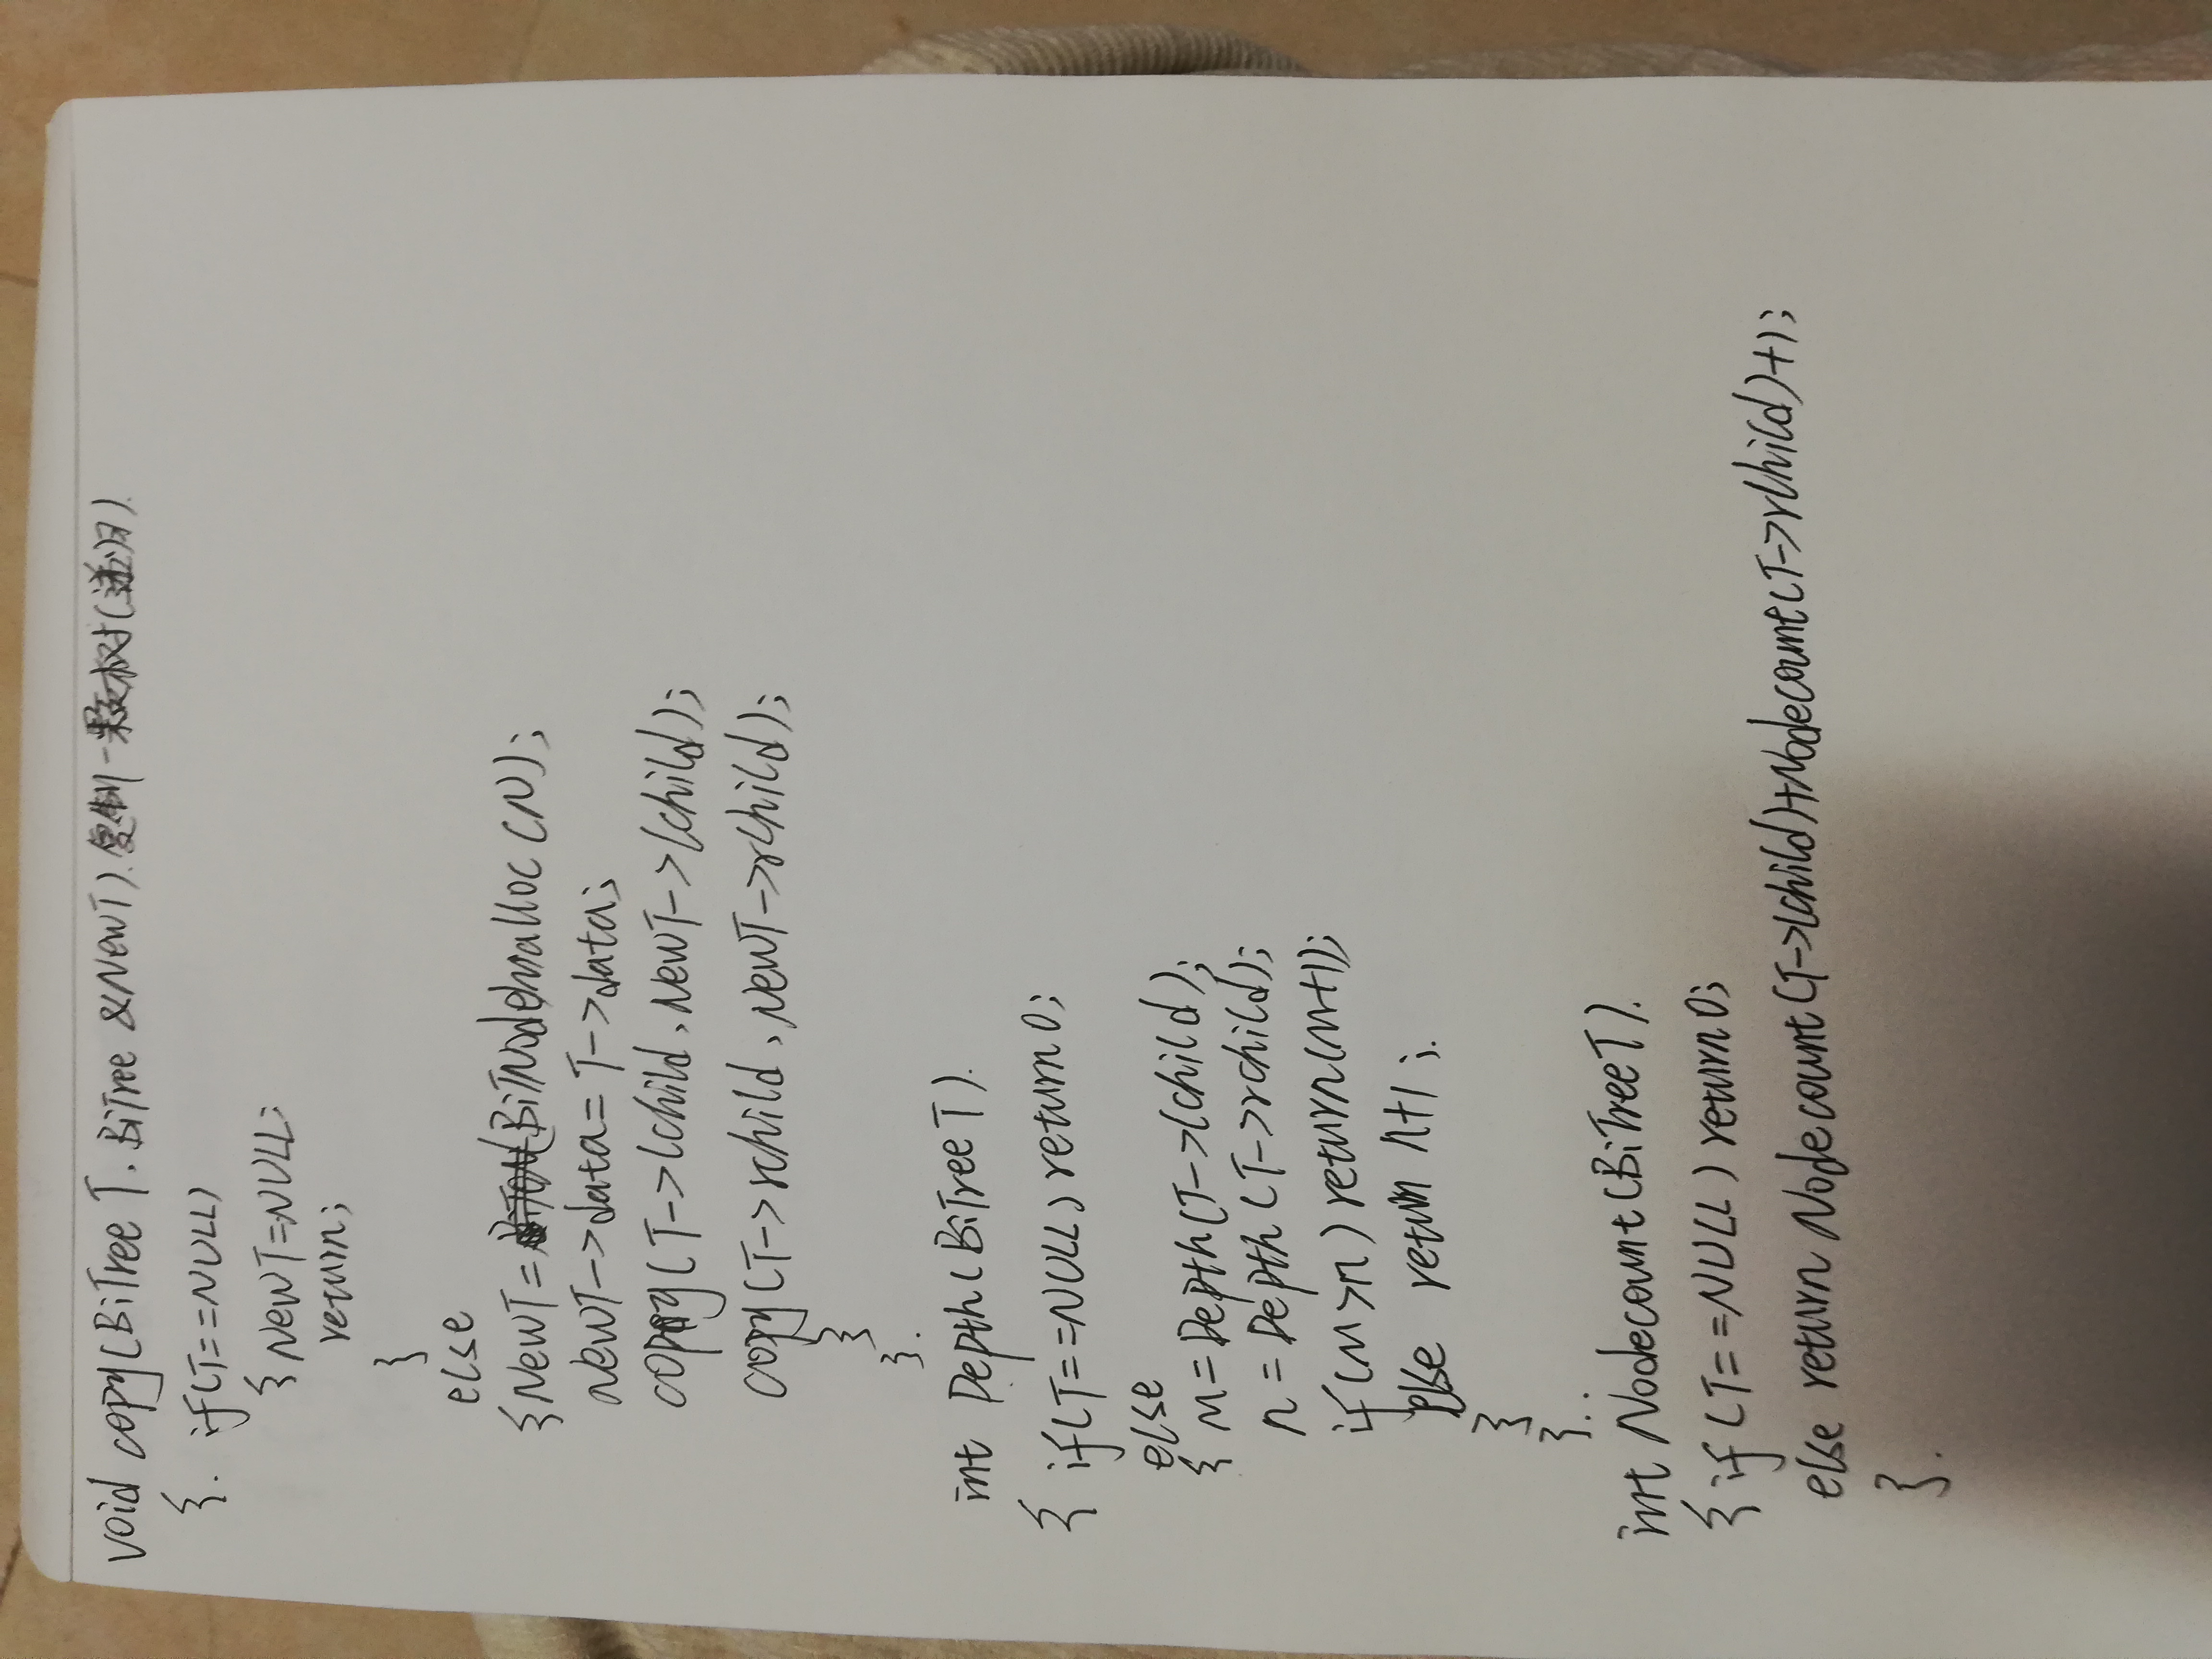 void copy(BiTree T, BiTree &NewT).复制一颗树(递归).
{. if(T==NULL)
{ NewT=NULL;
return;
}
else
{NewT=(BiTNode)malloc(N);
newT->data=T->data;
copy(T->lchild, NewT->lchild);
copy(T->rchild, NewT->rchild);
}
}.
int Depth(BiTree T).
{ if(T==NULL) return 0;
else
{ m=Depth(T->lchild);
n=Depth(T->rchild);
if(m>n) return(m+1);
else return n+1;
}
}.
int Nodecount(BiTree T).
{ if(T==NULL) return 0;
else return Nodecount(T->lchild)+Nodecount(T->rchild)+1;
}.